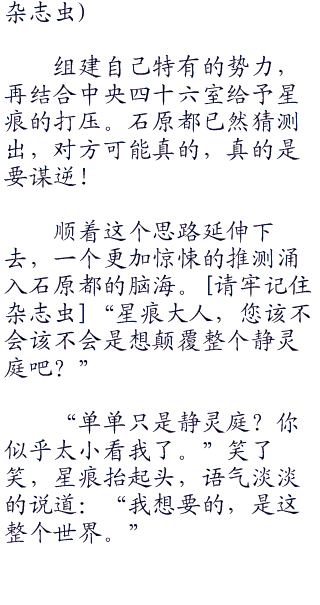 杂志虫)
组建自己特有的势力，
再结合中央四十六室给予星
痕的打压。石原都已然猜测
出，对方可能真的，真的是
要谋逆！
顺着这个思路延伸下
去，一个更加惊悚的推测涌
入石原都的脑海。[请牢记住
杂志虫]“星痕大人，您该不
会该不会是想颠覆整个静灵
庭吧？”
“单单只是静灵庭？你
似乎太小看我了。”笑了
笑，星痕抬起头，语气淡淡
的说道：“我想要的，是这
整个世界。”